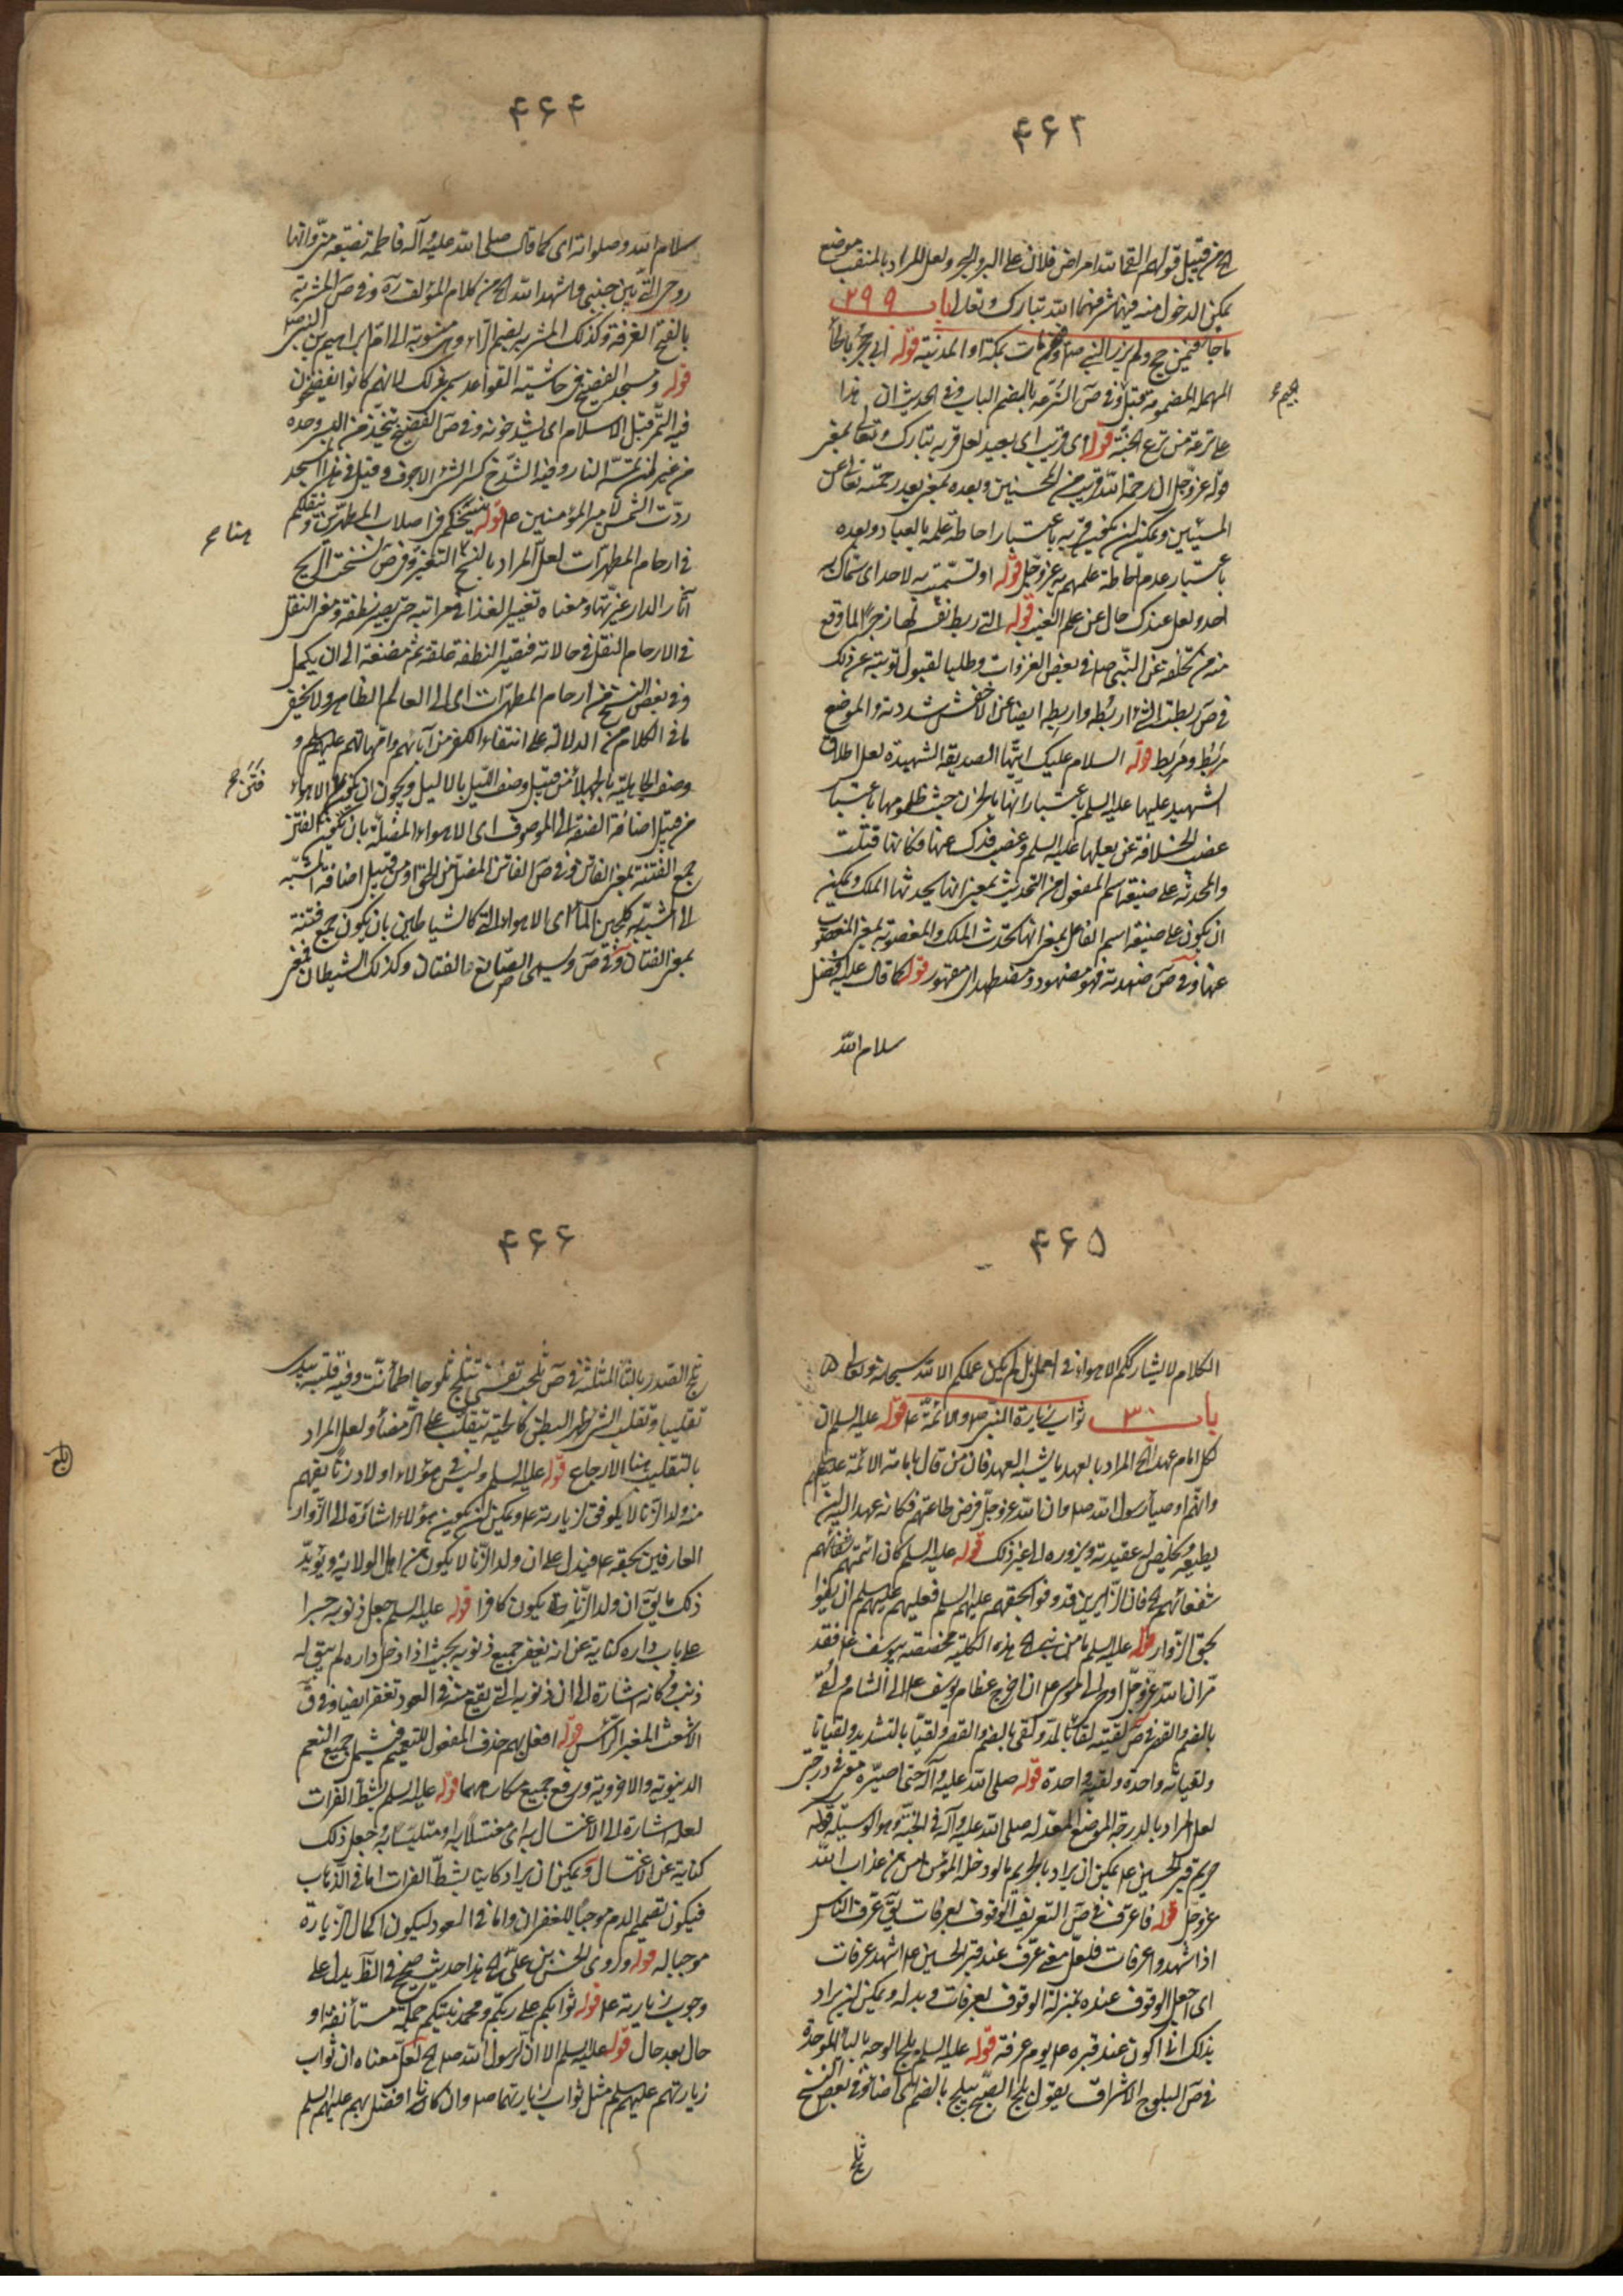 ۴۶۳
الخ من قبيل قولهم القحا الله امراض فلان على البر والبحر ولعل المراد بالمنقب موضع
يمكن الدخول منه فيهما شرفهما الله تبارك وتعالى باب ۲۹۹
ما جاء فيمن حج ولم يزر النبي ص وفيمن مات بمكة او المدينة قوله ابي حجر بالحاء
المهملة المضمومة قبل وفي ص الترعة بالضم الباب وفي الحديث ان هذا
جيم ع
على ترعة من ترع الجنة قوله اي قريب اي بعيد لعل قربه تبارك وتعالى بمعنى
قوله عز وجل ان رحمة الله قريب من المحسنين وبعده بمعنى بعد رحمته تعالى عن
المسيئين ويمكن ان يكون قربه باعتبار احاطة علمه بالعباد وبعده
باعتبار عدم احاطة علمهم به عز وجل قوله او تستتمت به لاحد اي شماتك به
احد ولعل عندك حال عن علم الغيب قوله التي ربط نفسه لها زجرا لما وقع
منه من تخلفه عن النبي ص في بعض الغزوات وطلبا لقبول توبته عن ذلك
في ص ربطت الشئ اربطه واربطه ايضا عن الاخفش شددته والموضع
مربط ومربط قوله السلام عليك ايتها الصديقة الشهيدة لعل اطلاق
الشهيد عليها عليها السلم باعتبار انها بالحزن حيث ظلموها باعتبار
غصب الخلافة عن بعلها عليه السلم وغصب فدك عنها فكانها قتلت
والمحدثة على صيغة اسم المفعول من التحديث بمعنى انها يحدثها الملك ويمكن
ان يكون على صيغة اسم الفاعل بمعنى انها تحدث الملك والمغصوبة بمعنى المغصوب
عنها وفي ص ضهدته فهو مضهود ومضطهد اي مقهور قوله كما قال عليه افضل
سلام الله
۴۶۴
سلام الله وصلواته اي كما قال صلى الله عليه وآله فاطمة بضعة مني وانها
روحي التي بين جنبي واشهد الله الخ من كلام المؤلف ره وفي ص المشربة
بالفتح الغرفة وكذلك المشربة بضم الراء وهي منسوبة الى ام ابراهيم بن النبي ص
قوله ومسجد الفضيخ في حاشية القواعد سمي بذلك لانهم كانوا يفضخون
فيه التمر قبل الاسلام اي يشدخونه وفي ص الفضيخ يتخذ من البسر وحده
من غير ان تمسه النار وفيه الشدخ كسر الشئ الاجوف وقيل في هذا المسجد
ردت الشمس لامير المؤمنين ع قوله ينسخكم في اصلاب المطهرين وينقلكم
هنا ع
في ارحام المطهرات لعل المراد بالنسخ التغير وفي ص نسخت الريح
آثار الدار غيرتها ومعناه تغيير الغذا في مراتبه حتى يصير نطفة ومعنى النقل
في الارحام النقل في حالاته فتصير النطفة علقة ثم مضغة الى ان يكمل
وفي بعض النسخ من ارحام المطهرات اي الى العالم الظاهر ولا يخفى
ما في الكلام من الدلالة على انتفاء الكفر من آبائهم وامهاتهم عليهم السلم و
وصف الجاهلية بالجهلاء من قبيل وصف الليل بالاليل ويجوز ان يكون فتن الاهواء
فتن ع
من قبيل اضافة الصفة الى الموصوف اي الاهواء المضلة بان يكون الفتن
جمع الفتنة بمعنى الفاتن وفي ص الفاتن المضل عن الحق او من قبيل اضافة المشبه
الى المشبه به كلجين الماء اي الاهواء التي كالشياطين بان يكون جمع فتنة
بمعنى الفتان وفي ص وسمي الصائغ بالفتان وكذلك الشيطان فمعنى
۴۶۵
الكلام لا يشارككم الاهواء في اعمل بل لم يكن عملكم الا لله سبحانه وتعالى
باب ۳۰۰ ثواب زيارة النبي ص والائمة ع قوله عليه السلم ان
لكل امام عهدا الخ المراد بالعهد ما يشبه العهد فان من قال بامامة الائمة عليهم السلم
وانهم اوصيا رسول الله ص وان الله عز وجل فرض طاعتهم فكانه عهد اليه ان
يطيعه ويخلص له عقيدته ويزوره الى غير ذلك قوله عليه السلم كان ائمتهم شفعائهم
شفعائهم الخ فان الزائرين قد وفوا بحقهم عليهم السلم فعليهم عليهم السلم ان يفوا
بحق الزوار قوله عليه السلم ما من نبي الخ هذه الكلية مخصصة بيوسف ع فقد
مر ان الله عز وجل اوحى الى موسى ع ان اخرج عظام يوسف ع الى الشام ولقى
بالضم والقصر في ص لقيته لقاء بالمد ولقى بالضم والقصر ولقيا بالتشديد ولقيانا
ولقيانة واحدة ولقية واحدة قوله صلى الله عليه وآله حتى اصيره معي في درجتي
لعل المراد بالدرجة الموضع المعد له صلى الله عليه وآله في الجنة وهو الوسيلة قوله
حريم قبر الحسين ع يمكن ان يراد بالحريم ما لو دخله المؤمن امن من عذاب الله
عز وجل قوله فاعرف في ص التعريف الوقوف بعرفات يق عرف الناس
اذا شهدوا عرفات فلعل معنى عرف عند قبر الحسين ع اشهد عرفات
اي اجعل الوقوف عنده بمنزلة الوقوف بعرفات وبدله ويمكن ان يراد
بذلك اني اكون عند قبره ع يوم عرفة قوله عليه السلم بلج الوجه بالباء الموحدة
في ص البلوج الاشراق يقول بلج الصبح يبلج بالضم اي اضاء وفي بعض النسخ
ثلج
۴۶۶
ثلج الصدر بالثاء المثلثة في ص ثلجت نفسي تثلج ثلوجا اطمأنت وفيه قلبته بيدي
تقليبا وتقلب الشئ ظهر البطن كالحية تتقلب على الرمضاء ولعل المراد
بالتقليب هنا الارجاع قوله عليه السلم وليس في هؤلاء اولاد زنا يفهم
بلج
منه ولد الزنا لا يكوفق لزيارته ع ويمكن ان يكون هؤلاء اشارة الى الزوار
العارفين بحقه ع فيدل على ان ولد الزنا لا يكون من اهل الولاية ويؤيد
ذلك ما يق ان ولد الزنا يكون كافرا قوله عليه السلم جعل ذنوبه جسرا
على باب داره كناية عن انه يغفر جميع ذنوبه بحيث اذا دخل داره لم يبق له
ذنب وكانه اشارة الى ان ذنوبه التي يقع منه في العود تغفر ايضا وفي ق
الاشعث المغبر الرأس قوله افعل بهم حذف المفعول للتعميم فيشمل جميع النعم
الدنيوية والاخروية ورفع جميع مكارهها قوله عليه السلم بشط الفرات
لعله اشارة الى الاغتسال به اي مغتسلا به او متلبسا به وجعل ذلك
كناية عن الاغتسال ويمكن ان يراد كائنا بشط الفرات اما في الذهاب
فيكون تصميم الدم موجبا للغفران واما في العود ليكون اكمال الزيارة
موجبا له قوله وروى الحسن بن علي الخ هذا حديث صحيح في الظ يدل على
وجوب زيارته ع قوله ثوابكم على ربكم ومحمد نبيكم جملة مستأنفة او
حال بعد حال قوله عليه السلم الا ان لرسول الله ص الخ لعل معناه ان ثواب
زيارتهم عليهم السلم مثل ثواب زيارتهما ص وان كانا افضل بهم عليهم السلم